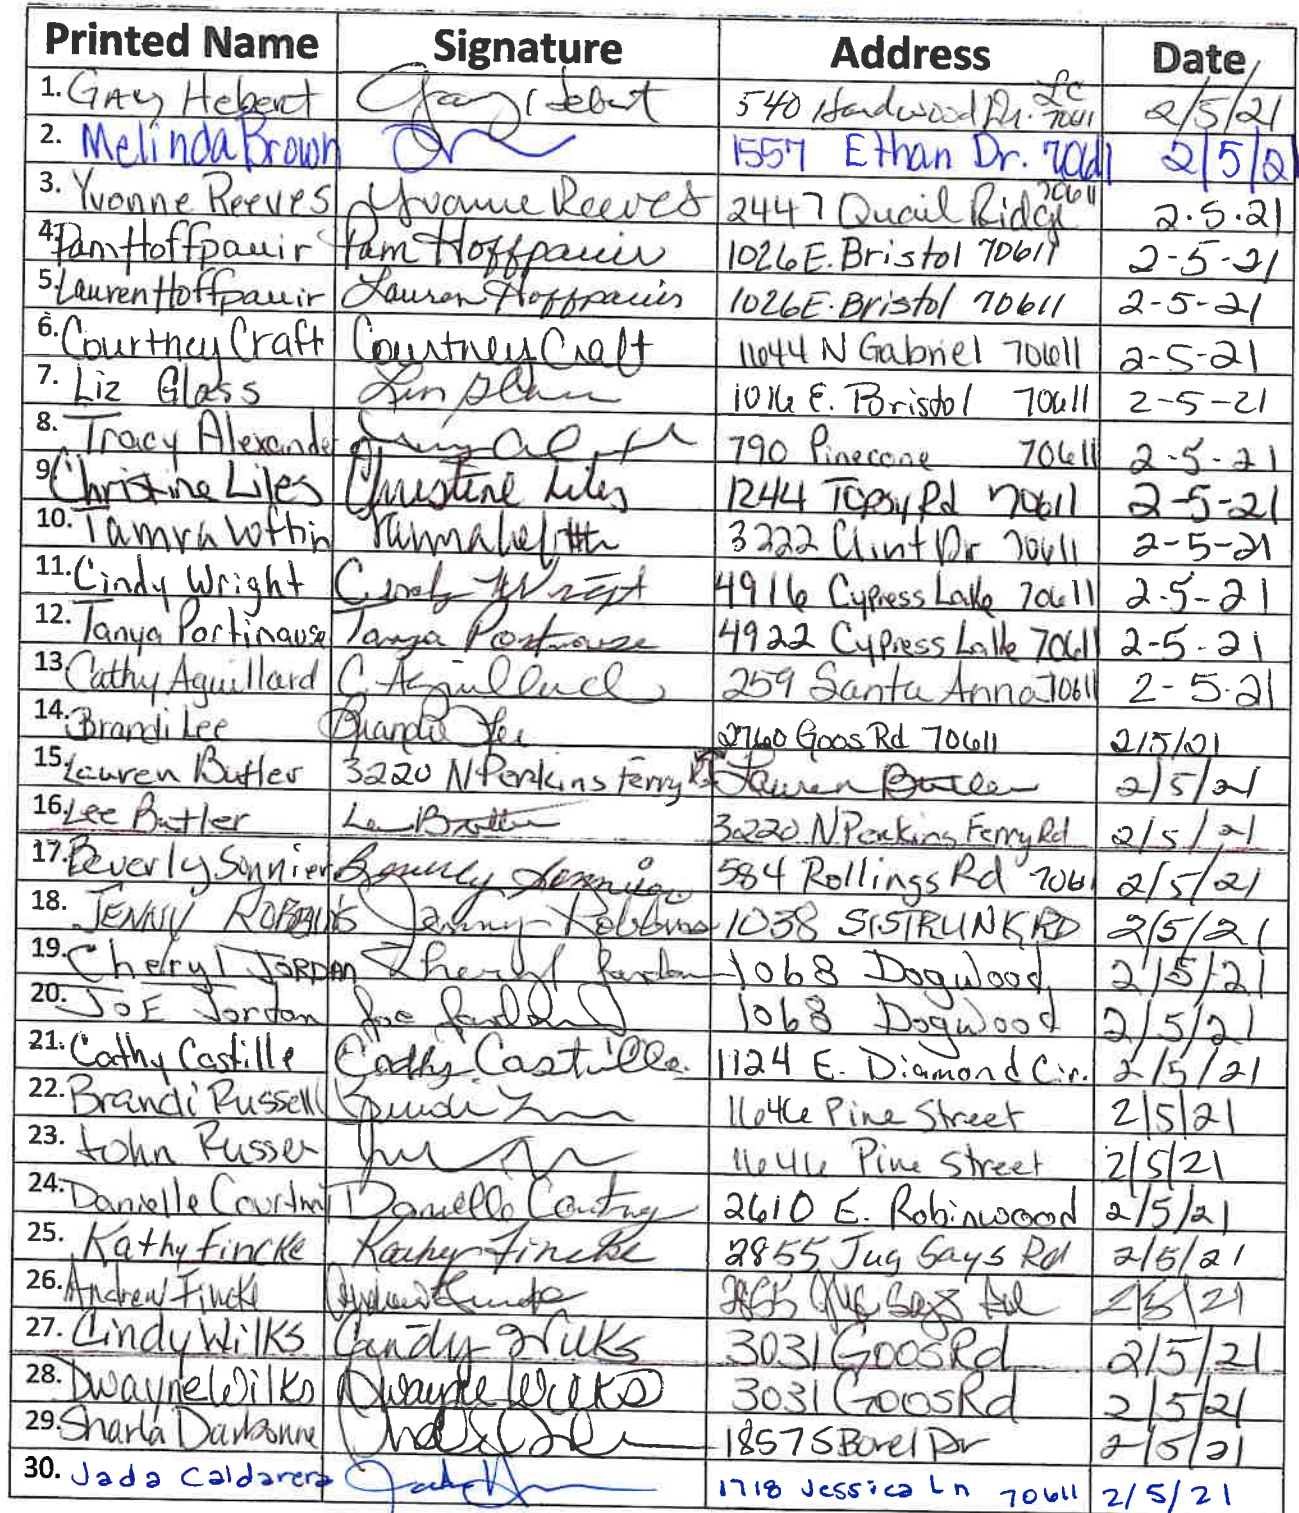 Printed Name Signature Address Date
1. Gay Hebert Gay Hebert 540 Hardwood Dr. LC 70611 2/5/21
2. Melinda Brown 1557 Ethan Dr. 70611 2/5/2
3. Yvonne Reeves Yvonne Reeves 2447 Quail Ridge 70611 2.5.21
4. Pam Hoffpauir Pam Hoffpauir 1026 E. Bristol 70611 2-5-21
5. Lauren Hoffpauir Lauren Hoffpauir 1026 E. Bristol 70611 2-5-21
6. Courtney Craft Courtney Craft 1644 N Gabriel 70611 2-5-21
7. Liz Glass 1016 E. Bristol 70611 2-5-21
8. Tracy Alexander 790 Pinecone 70611 2-5-21
9. Christine Liles Christine Liles 1244 Topsy Rd 70611 2-5-21
10. Tamra Loftin 3222 Clint Dr 70611 2-5-21
11. Cindy Wright Cindy Wright 4916 Cypress Lake 70611 2-5-21
12. Tanya Portinause Tanya 4922 Cypress Lake 70611 2-5-21
13. Cathy Aguillard C Aguillard 259 Santa Anna 70611 2-5-21
14. Brandi Lee Brandi Lee 2760 Goos Rd 70611 2/5/21
15. Lauren Butler 3220 N Perkins Ferry Rd Lauren Butler 2/5/21
16. Lee Butler Lee Butler 3220 N Perkins Ferry Rd 2/5/21
17. Beverly Sonnier Beverly Sonnier 584 Rollings Rd 7061 2/5/21
18. JENNY ROBBINS Jenny Robbins 1038 SISTRUNK RD 2/5/21
19. Cheryl JORDAN Cheryl Jordan 1068 Dogwood 2/5/21
20. JOE Jordan Joe Jordan 1068 Dogwood 2/5/21
21. Cathy Castille Cathy Castille 1124 E. Diamond Cir. 2/5/21
22. Brandi Russell 1646 Pine Street 2/5/21
23. John Russell 1646 Pine Street 2/5/21
24. Danielle Courtney Danielle Courtney 2610 E. Robinwood 2/5/21
25. Kathy Fincke Kathy Fincke 2855 Jug Gays Rd 2/5/21
26. Andrew Fincke Andrew Fincke 2855 Jug Gays Rd 2/5/21
27. Cindy Wilks Candy Wilks 3031 Goos Rd 2/5/21
28. Dwayne Wilks Dwayne Wilks 3031 Goos Rd 2/5/21
29. Sharla Darbonne 1857 S Borel Dr 2/5/21
30. Jada Caldarera 1718 Jessica Ln 70611 2/5/21